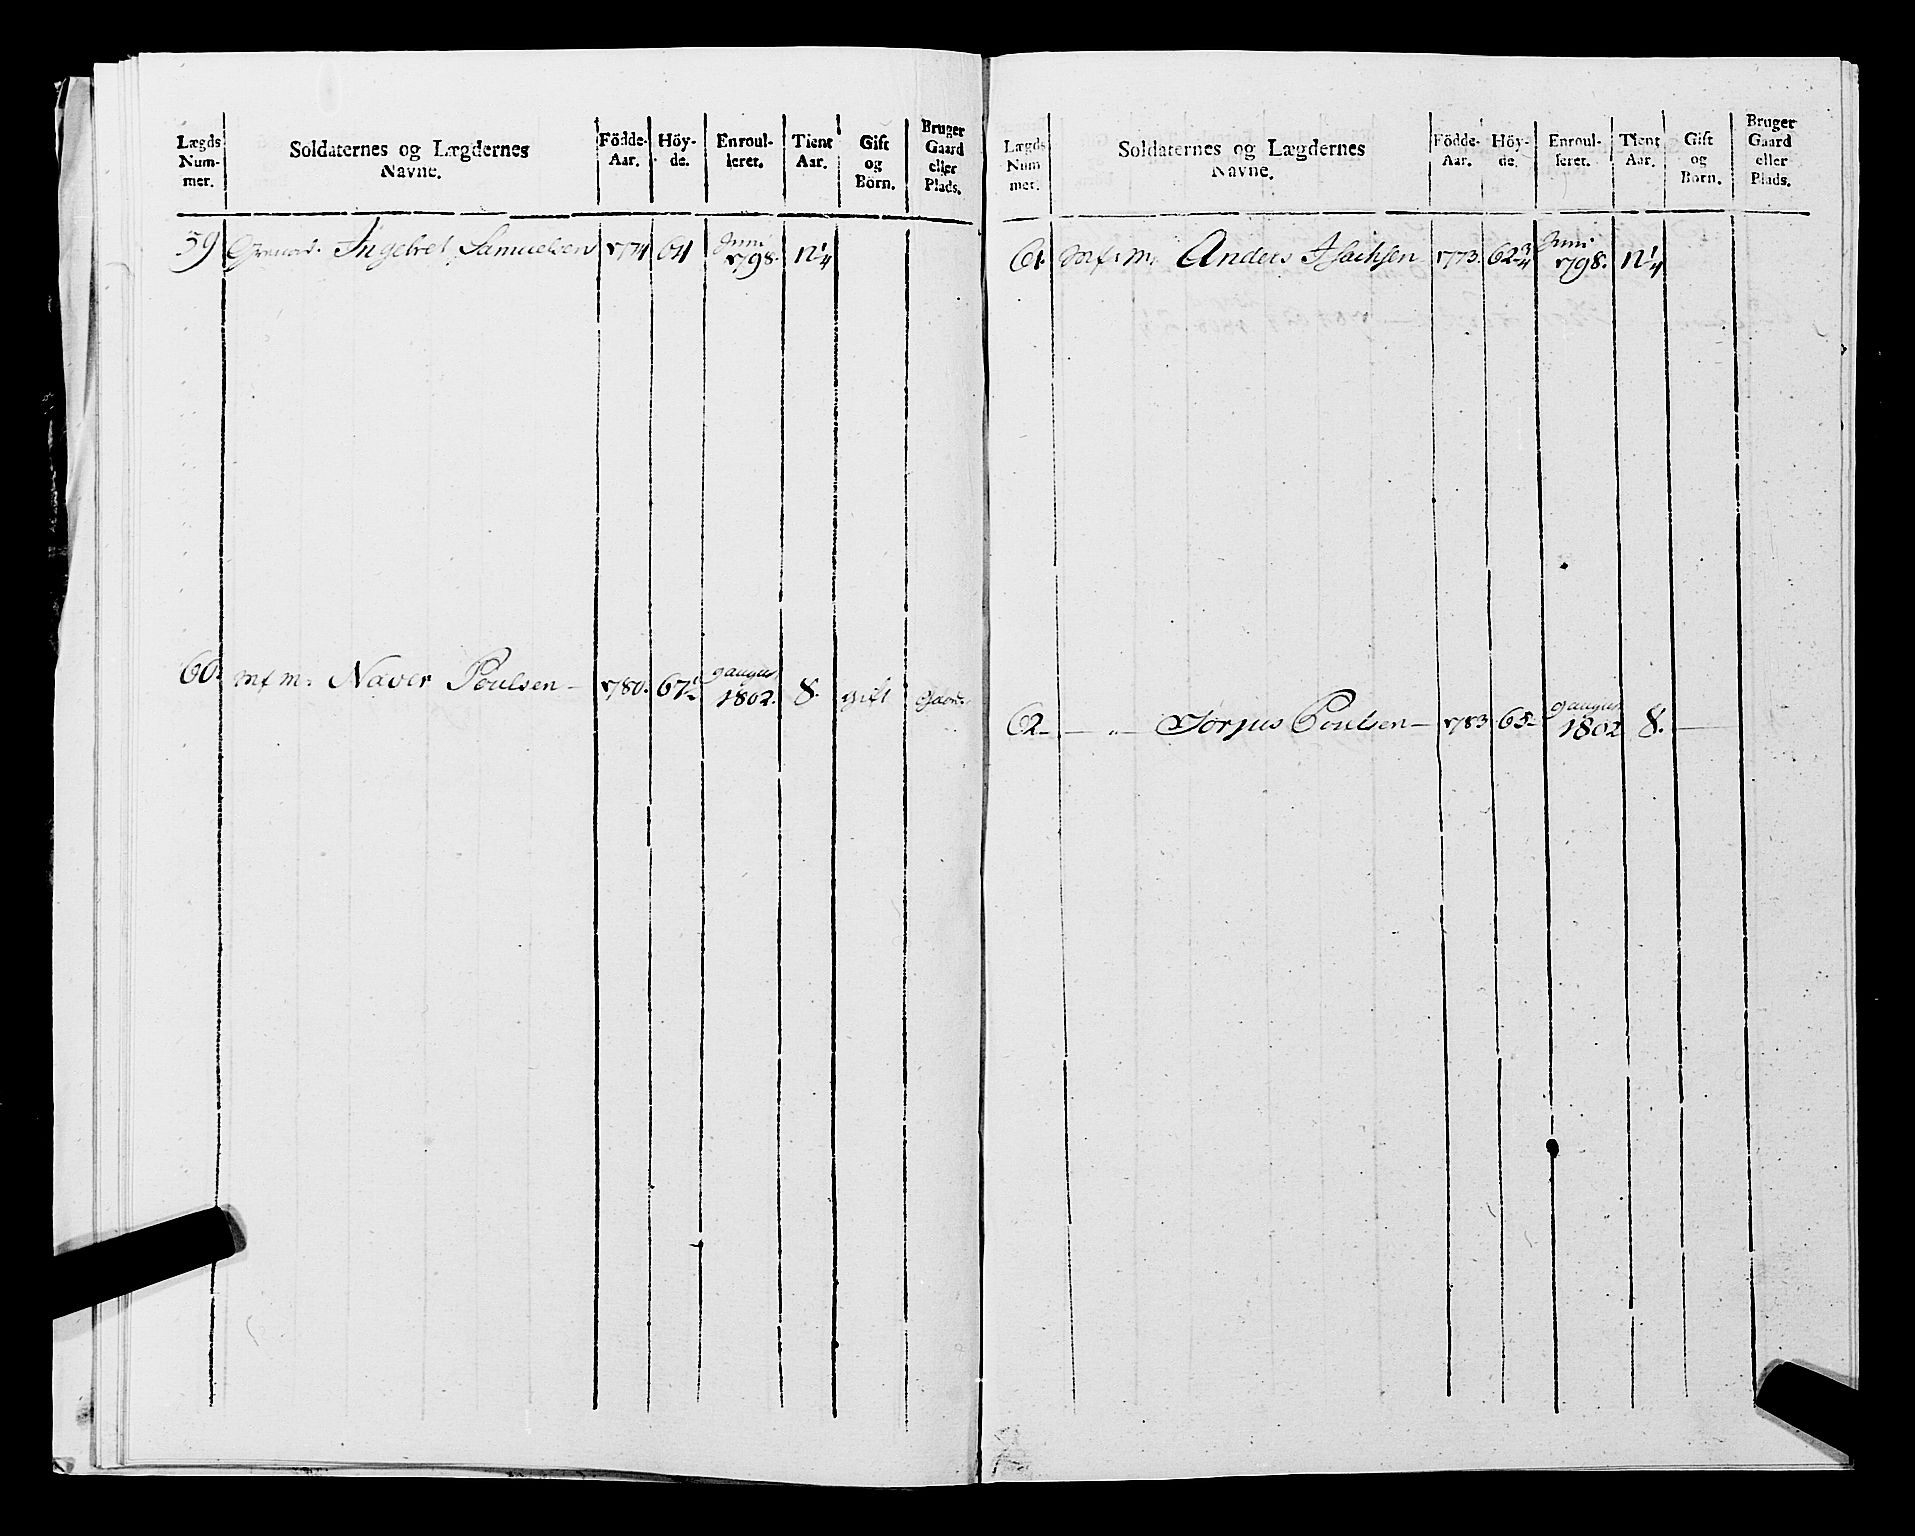 Lægds Num- mer.
Soldaternes og Lægdernes Navne.
Födde- Aar.
Höy- de.
Enroul- leret.
Tient Aar.
Gift og Börn.
Bruger Gaard eller Plads.
59 Grenad. Ingebret Samuelsen 1774 64 Juni 1798. 12¼
60. Mf. M. Naver Poulsen – 1780. 67½ 9 augus 1802. 8. gift Gaard.
Lægds Num mer.
Soldaternes og Lægdernes Navne.
Födde- Aar.
Höy- de.
Enroul- leret.
Tient Aar.
Gift og Börn.
Bruger Gaard eller Plads.
61. Mf: M. Anders Isachsen 1773. 62¾ Juni 1798. 12¼
62 – — „ — Torjus Poulsen – 1783 65 – 9 augus 1802 8. —